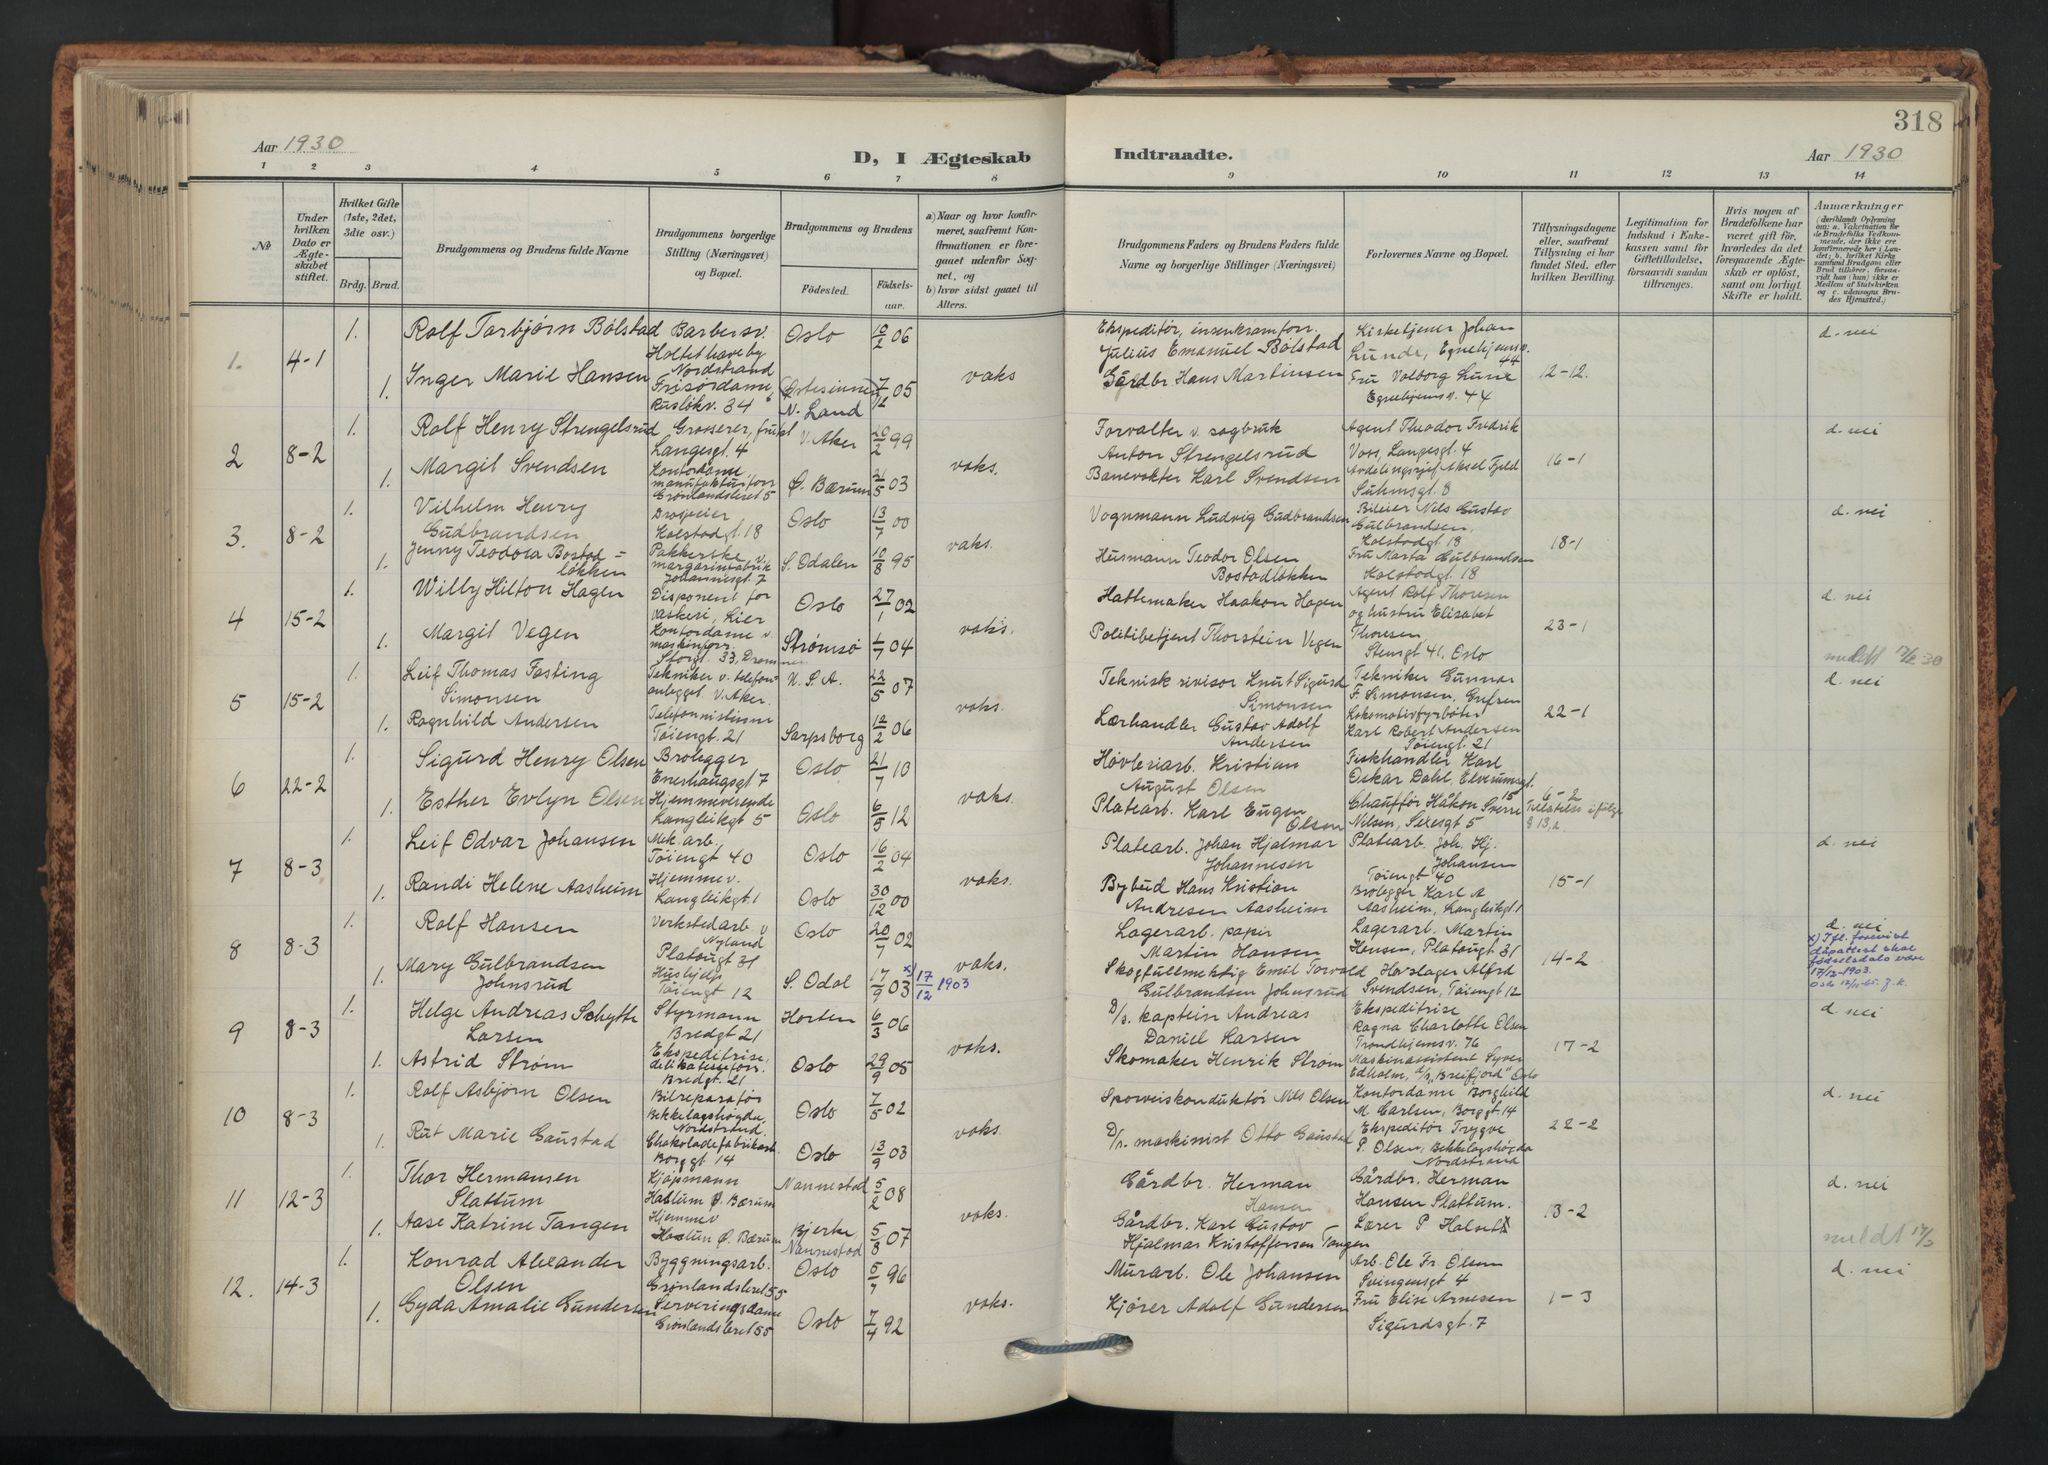 318
Aar 1930
D, I Ægteskab
Indtraadte.
Aar 1930
1 2 3 4 5 6 7 8 9 10 11 12 13 14
No
Under hvilken Dato er Ægteskabet stiftet.
Hvilket Gifte (1ste, 2det, 3die osv.)
Brdg. Brud.
Brudgommens og Brudens fulde Navne
Brudgommens borgerlige Stilling (Næringsvei) og Bopæl.
Brudgommens og Brudens
Fødested.
Fødselsaar.
a) Naar og hvor konfirmeret, saafremt Konfirmationen er foregaaet udenfor Sognet, og
b) hvor sidst gaaet til Alters.
Brudgommens Faders og Brudens Faders fulde Navne og borgerlige Stillinger (Næringsvei)
Forlovernes Navne og Bopæl.
Tillysningsdagene eller, saafremt Tillysning ei har fundet Sted, efter hvilken Bevilling.
Legitimation for Indskud i Enkekassen samt for Giftetilladelse, forsaavidt saadan tiltrænges.
Hvis nogen af Brudefolkene har været gift før, hvorledes da det foregaaende Ægteskab er opløst, samt om lovligt Skifte er holdt.
Anmærkninger
1. 4-1
1. Rolf Torbjørn Bølstad Barbersv. Holtet haveby Nordstrand Oslo 10/2 06
1. Inger Marie Hansen Frisørdame Rusløkv. 34 N. Land 7/12 05
vaks
Ekspeditør, isenkramforr. Julius Emanuel Bølstad
Gårdbr Hans Martinsen
Kirketjener Johan Lunde, Egnehjemsv. 44
Fru Valborg Lunde Egnehjemsv. 44
12-12.
d. nei
2 8-2
1. Rolf Henry Strengelsrud Grosserer, frukt Langesgt. 4 V. Aker 20/2 99
1. Margit Svendsen Kontordame manufakturforr. Grønlandsleret 5 Ø. Bærum 21/5 03
vaks.
Forvalter v. sagbruk Anton Strengelsrud
Banevokter Karl Svendsen
Agent Theodor Fredrik Voss, Langesgt. 4
Avdelingssjef Aksel Fjeld Suhmsgt. 8
16-1
d. nei
3. 8-2
1. Vilhelm Henry Gudbrandsen Drosjeeier Holstsgt 18 Oslo 13/7 00
1. Jenny Teodora Bostadløkken Pakkerske v. margarinfabrik Johannesgt. 7 S. Odalen 10/8 95
vaks.
Vognmann Ludvig Gudbrandsen
Husmann Teodor Olsen Bostadløkken
Bileier Nils Gustav Gulbrandsen, Holstsgt 18
Fru Marta Gulbrandsen Holstsgt. 18
18-1
d. nei
4 15-2
1. Willy Hilton Hagen Disponent for vaskeri, Lier Oslo 27/1 02
1. Margit Vegen Kontordame v. maskinforr. Storgt. 33, Drammen Strømsø 1/7 04
vaks.
Hattemaker Haakon Hagen
Politibetjent Thorstein Vegen
Agent Rolf Thoresen og hustru Elisabet Thoresen, Stensgt 41, Oslo
23-1
d. nei
meldt 17/2 30
5 15-2
1. Leif Thomas Fasting Simonsen Tekniker v. telefonanlegget V. Aker. U. S. A. 22/5 07
1. Ragnhild Andersen Telefonistinne Tøiengt. 21 Sarpsborg 12/2 06
vaks.
Teknisk revisor Knut Sigurd Simonsen
Lærhandler Gustav Adolf Andersen
Tekniker Gunnar F. Simonsen, Grefsen
Lokomotivfyrbøter Karl Robert Andersen Tøiengt. 21
22-1
d. nei
6 22-2
1. Sigurd Henry Olsen Brolegger Enerhaugsgt 7 Oslo 21/7 10
1. Esther Evlyn Olsen Hjemmeverende Langleikgt 5 Oslo 6/5 12
vaks.
Høvleriarb. Kristian August Olsen
Platearb. Karl Eugen Olsen
Fiskhandler Karl Oskar Dahl, Elverumsgt. 15
Chauffør Håkon Sverre Nilsen, Seksesgt 5
6-2
7 8-3
1. Leif Odvar Johansen Mek. arb. Tøiengt 40 Oslo 16/2 04
1. Randi Helene Aasheim Hjemmev. Langleikgt. 1 Oslo 30/12 00
vaks.
Platearb. Johan Hjalmar Johannesen
Bybud Hans Kristian Andresen Aasheim
Platearb. Joh. Hj. Johansen Tøiengt 40
Brolegger Karl A Aasheim, Langleikgt. 1
15-1
d. nei
8 8-3
1. Rolf Hansen Verkstedarb v Nyland Platougt 31 Oslo 20/7 02
1. Mary Gulbrandsen Johnsrud Hushjelp Tøiengt 12 S. Odal 17/9 03 x) 17/12 1903
vaks.
Lagerarb. papir Martin Hansen
Skogfullmektig Emil Torvald Gulbrandsen Johnsrud
Lagerarb. Martin Hansen, Platougt 31
Hovslager Alfred Svendsen, Tøiengt 12
14-2
d. nei
x) Ifl. forevist dåpattest skal fødselsdato være 17/12-1903.
9 8-3
1. Helge Andreas Schytte Larsen Styrmann Bredgt. 21 Horten 6/3 06
1. Astrid Strøm Ekspeditrise, delikatesseforr. Bredgt. 21 Oslo 29/9 05
vaks.
D/s. kaptein Andreas Daniel Larsen
Skomaker Henrik Strøm
Ekspeditrise Ragna Charlotte Olsen Trondhjemsv. 76
Maskinassistent Syver Edholm, d/s "Breifjord" Oslo
17-2
d. nei
10 8-3
1. Rolf Asbjørn Olsen Bilreparatør Bekkelagshøgda Nordstrand. Oslo 7/5 02
1. Rut Marie Gaustad Chokoladefabrikarb. Borggt 14 Oslo 13/9 03
vaks.
Sporveiskonduktør Nils Olsen
D/s. maskinist Otto Gaustad
Kontordame Borghild M. Carlsen, Borggt. 14
Ekspeditør Trygve P. Olsen, Bekkelagshøgda Nordstrand
22-2
d. nei
11 12-3
1. Thor Hermansen Slattum Kjøpmann Haslum Ø. Bærum Nannestad 5/2 08
1. Aase Katrine Tangen Hjemmev Haslum Ø. Bærum Bjerke, Nannestad 5/8 07
vaks.
Gårdbr. Herman Hansen
Gårdbr. Karl Gustav Hjalmar Kristoffersen Tangen
Gårdbr. Herman Hansen Slattum.
Lærer P Halset
13-2
d. nei
meldt 17/3
12. 14-3
1. Konrad Alexander Olsen Byggningsarb. Grønlandsleret 55 Oslo 5/7 96
1. Gyda Amalie Gundersen Serveringsdame Grønlandsleret 55 Oslo 7/4 92
vaks.
Murarb. Ole Johansen
Kjører Adolf Gundersen
Arb. Ole Fr. Olsen Svingensgt 4
Fru Elise Arnesen Sigurdsgt. 7
1-3
d. nei